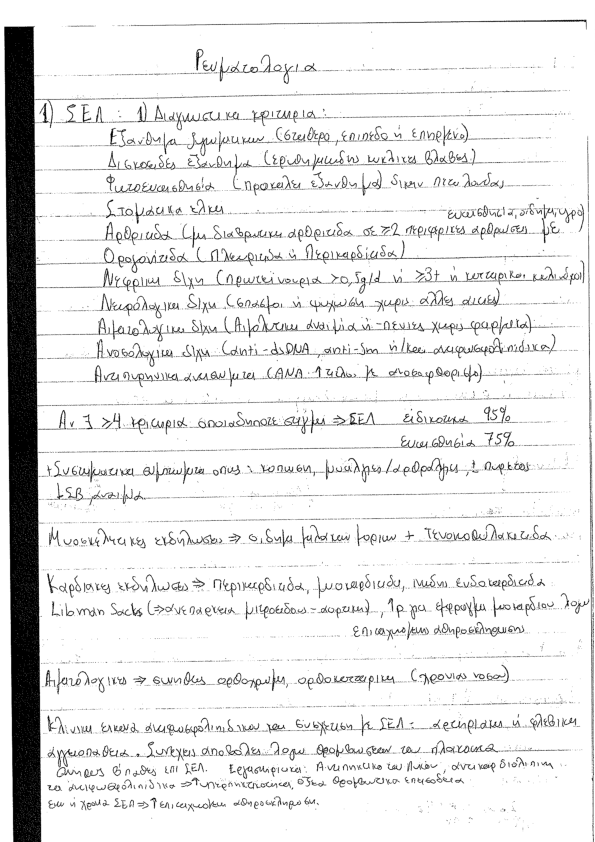 Ρευματολογια
1) ΣΕΛ : 1) Διαγνωστικα κριτηρια :
Εξανθημα ζυγωματικων (σταθερο, επιπεδο ή επηρμενο)
Δισκοειδες εξανθημα (ερυθηματωδεις κυκλικες βλαβες)
Φωτοευαισθησία (Προκαλει εξανθημα) δικην πεταλουδας
Στοματικα ελκη
ευαισθησία, οιδημα, υγρο)
Αρθριτιδα (μη διαβρωτικη αρθριτιδα σε ≥2 περιφερικες αρθρωσεις με
Ορογονιτιδα (Πλευριτιδα ή Περικαρδιτιδα)
Νεφρικη δ/χη (πρωτεϊνουρια >0,5g/d ή ≥3+ ή κυτταρικοι κυλινδροι)
Νευρολογικη δ/χη (σπασμοι ή ψυχωση χωρις αλλες αιτιες)
Αιματολογικη δ/χη (Αιμολυτικη αναιμία ή -πενιες χωρις φαρμακα)
Ανοσολογικη δ/χη (anti-dsDNA, anti-Sm ή/και αντιφωσφολιπιδικα)
Αντιπυρηνικα αντισωματα (ANA ↑τιτλο με ανοσοφθορισμο)
Αν ∃ ≥4 κριτηρια οποιαδηποτε στιγμη ⇒ ΣΕΛ ειδικοτητα 95%
ευαισθησία 75%
+Συστηματικα συμπτωματα οπως : κοπωση, μυαλγιες/αρθραλγιες, ± πυρετος
↓ΣΒ, αναιμια
Μυοσκελετικες εκδηλωσεις ⇒ οιδημα μαλακων μοριων + Τενοντοθυλακιτιδα
Καρδιακες εκδηλωσεις ⇒ Περικαρδιτιδα, μυοκαρδιτιδα, ινωδης ενδοκαρδιτιδα
Libman Sacks (⇒ανεπαρκεια μιτροειδους - αορτικης), ↑ρ για εμφραγμα μυοκαρδιου λογω
επιταχυνομενης αθηροσκληρυνσης
Αιματολογικες ⇒ συνηθως ορθοχρωμη, ορθοκυτταρικη (χρονιας νοσου)
Κλινικη εικονα αντιφωσφολιπιδικου και συσχετιση με ΣΕΛ : αρτηριακες ή φλεβικη
αγγειοπαθεια. Συνεχεις αποβολες λογω θρομβωσεων του πλακουντα
επι ΣΕΛ. Εργαστηριακα: Αντιπηκτικο του Λυκου, αντικαρδιολιπινη
τα αντιφωσφολιπιδικα ⇒ ↑υπερπηκτικοτητα, οξεα θρομβωτικα επεισοδεια
ενω η χρονια ΣΕΛ ⇒ ↑ επιταχυνομενη αθηροσκληρυνση.